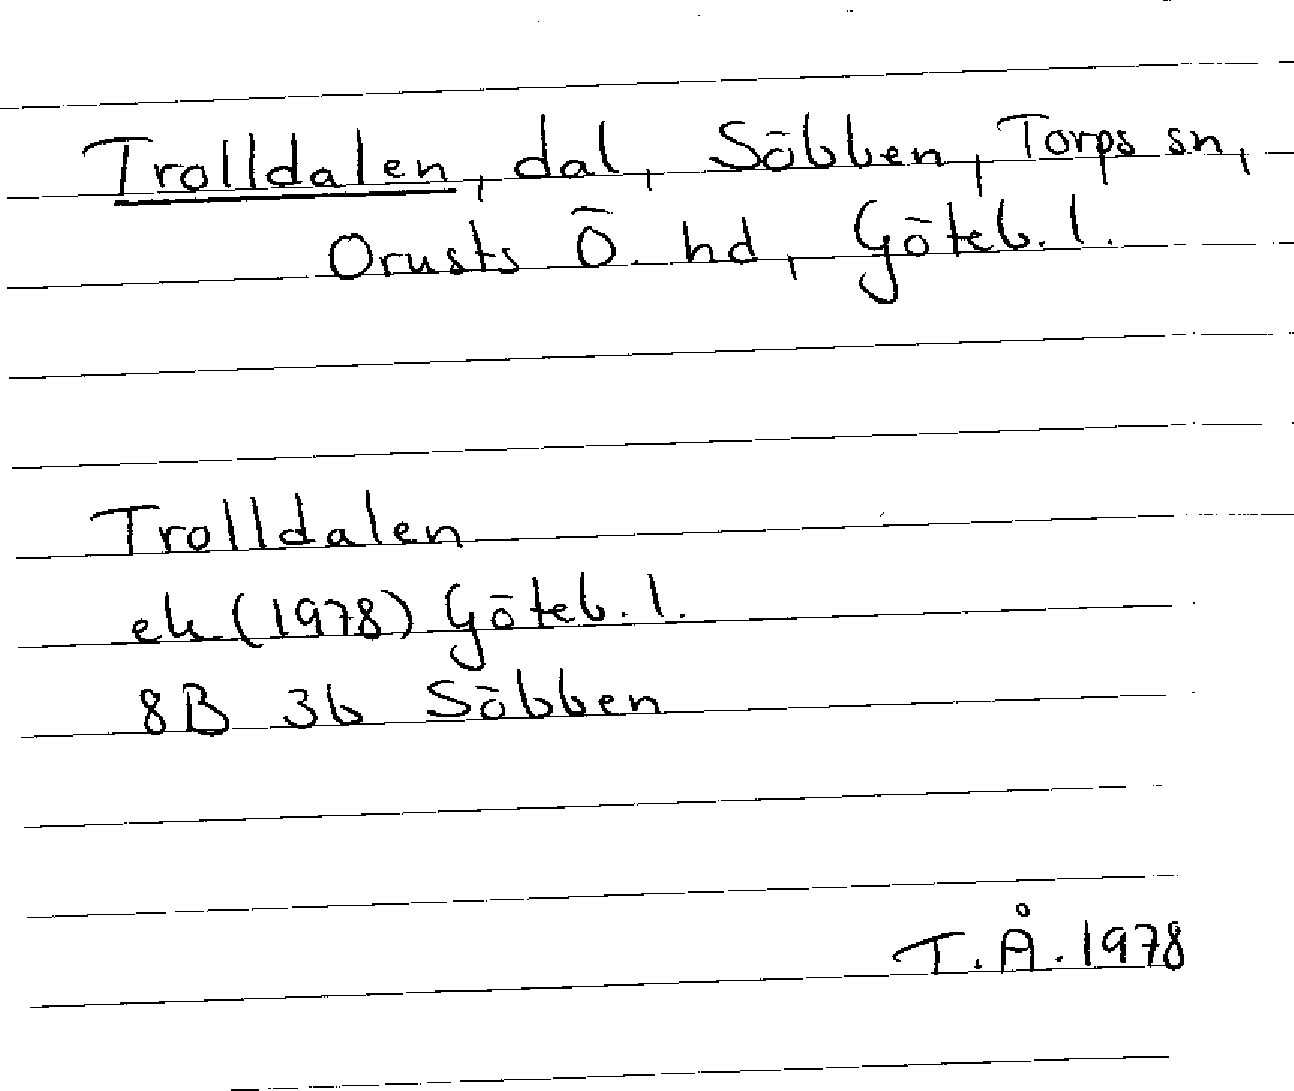 Trolldalen, dal, Söbben, Torps sn,
Orusts Ö. hd, Göteb. l.
Trolldalen
ek (1978) Göteb. l.
8B 3b Söbben
T. Å. 1978